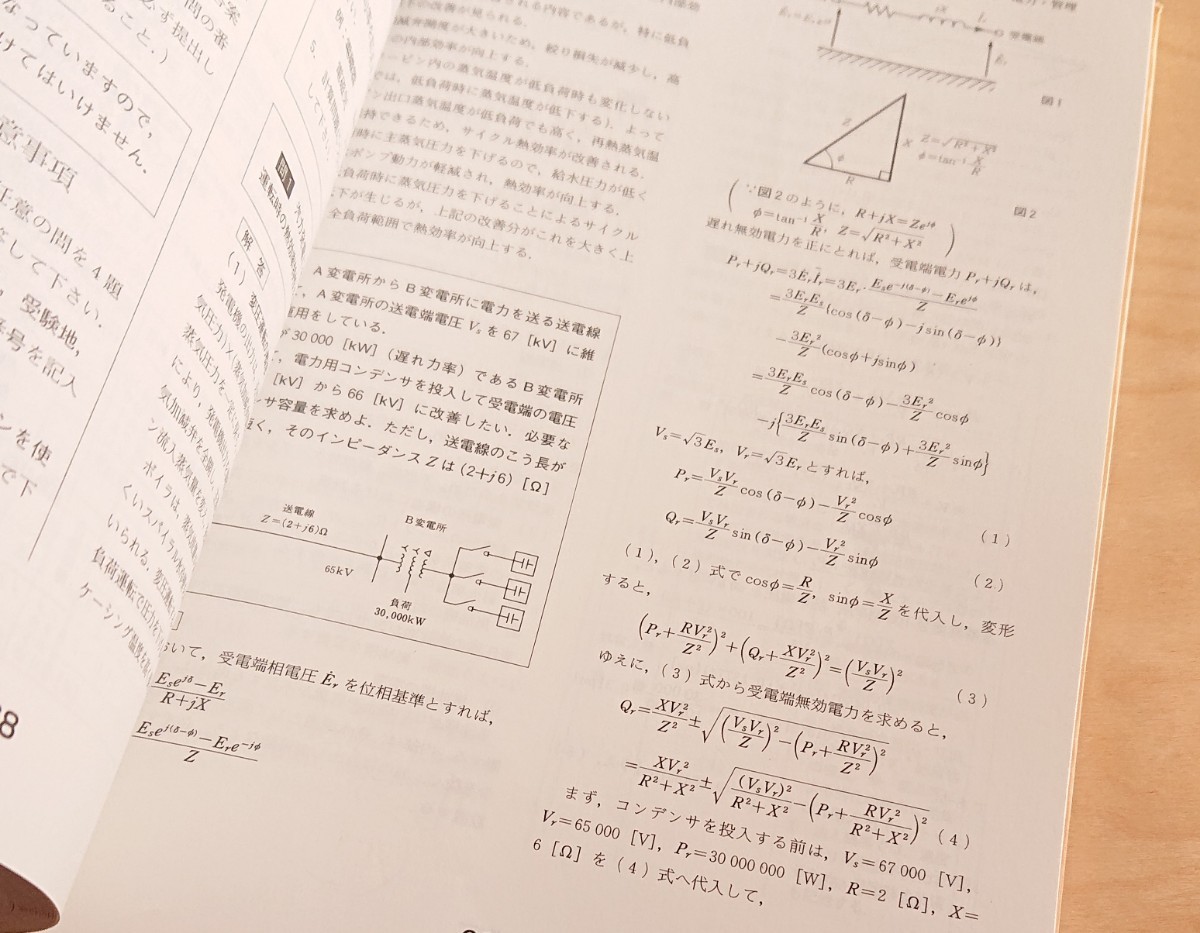 答案
問の番
必ず提出し
ること.)
なっていますので,
けてはいけません.
意事項
任意の問を4題
答して下さい.
受験地,
番号を記入
ンを使
で下
問1
運転時の
解 答
(1) 変圧運転
発電機の出力
気圧力)×
蒸気圧力を一定
により, 発電機
気加減弁を全開
ン流入蒸気量を
ボイラは, 蒸
くいスパイラル
いられる.
負荷運転で圧力を
ケーシング温度
される内容であるが, 特に低負
の改善が見られる.
減弁開度が大きいため, 絞り損失が減少し, 高
の内部効率が向上する.
ービン内の蒸気温度が低負荷時も変化しない
では, 低負荷時に蒸気温度が低下する). よって
ン出口蒸気温度が低負荷でも高く, 再熱蒸気温
持できるため, サイクル熱効率が改善される.
時に主蒸気圧力を下げるので, 給水圧力が低く
ポンプ動力が軽減され, 熱効率が向上する.
負荷時に蒸気圧力を下げることによるサイクル
下が生じるが, 上記の改善分がこれを大きく上
全負荷範囲で熱効率が向上する.
A変電所からB変電所に電力を送る送電線
, A変電所の送電端電圧 Vs を67 [kV] に維
運用をしている.
が30 000 [kW] (遅れ力率) であるB変電所
, 電力用コンデンサを投入して受電端の電圧
[kV] から66 [kV] に改善したい. 必要な
ンサ容量を求めよ. ただし, 送電線のこう長が
く, そのインピーダンスZは (2+j6) [Ω]
送電線
Z=(2+j6)Ω
B変電所
65kV
負荷
30,000kW
おいて, 受電端相電圧 Ėr を位相基準とすれば,
Ese^jδ−Er / R+jX
Ese^j(δ−φ)−Ere^−jφ / Z
88
受電端
図1
Z
X
R
φ
Z=√(R²+X²)
φ=tan⁻¹ X/R
図2
(∵図2のように, R+jX=Ze^jφ
φ=tan⁻¹ X/R, Z=√(R²+X²))
遅れ無効電力を正にとれば, 受電端電力 Pr+jQr は,
Pr+jQr=3ĖrİR=3Er・(Ese^−j(δ−φ)−Ere^jφ)/Z
=3ErEs/Z {cos(δ−φ)−jsin(δ−φ)}
−3Er²/Z (cosφ+jsinφ)
=3ErEs/Z cos(δ−φ)−3Er²/Z cosφ
−j{3ErEs/Z sin(δ−φ)+3Er²/Z sinφ}
Vs=√3Es, Vr=√3Er とすれば,
Pr=VsVr/Z cos(δ−φ)−Vr²/Z cosφ (1)
Qr=VsVr/Z sin(δ−φ)−Vr²/Z sinφ (2)
(1), (2) 式で cosφ=R/Z, sinφ=X/Z を代入し, 変形
すると,
(Pr+RVr²/Z²)²+(Qr+XVr²/Z²)²=(VsVr/Z)² (3)
ゆえに, (3) 式から受電端無効電力を求めると,
Qr=XVr²/Z²±√((VsVr/Z)²−(Pr+RVr²/Z²)²)
=XVr²/(R²+X²)±√((VsVr)²/(R²+X²)−(Pr+RVr²/(R²+X²))²) (4)
まず, コンデンサを投入する前は, Vs=67 000 [V],
Vr=65 000 [V], Pr=30 000 000 [W], R=2 [Ω], X=
6 [Ω] を (4) 式へ代入して,